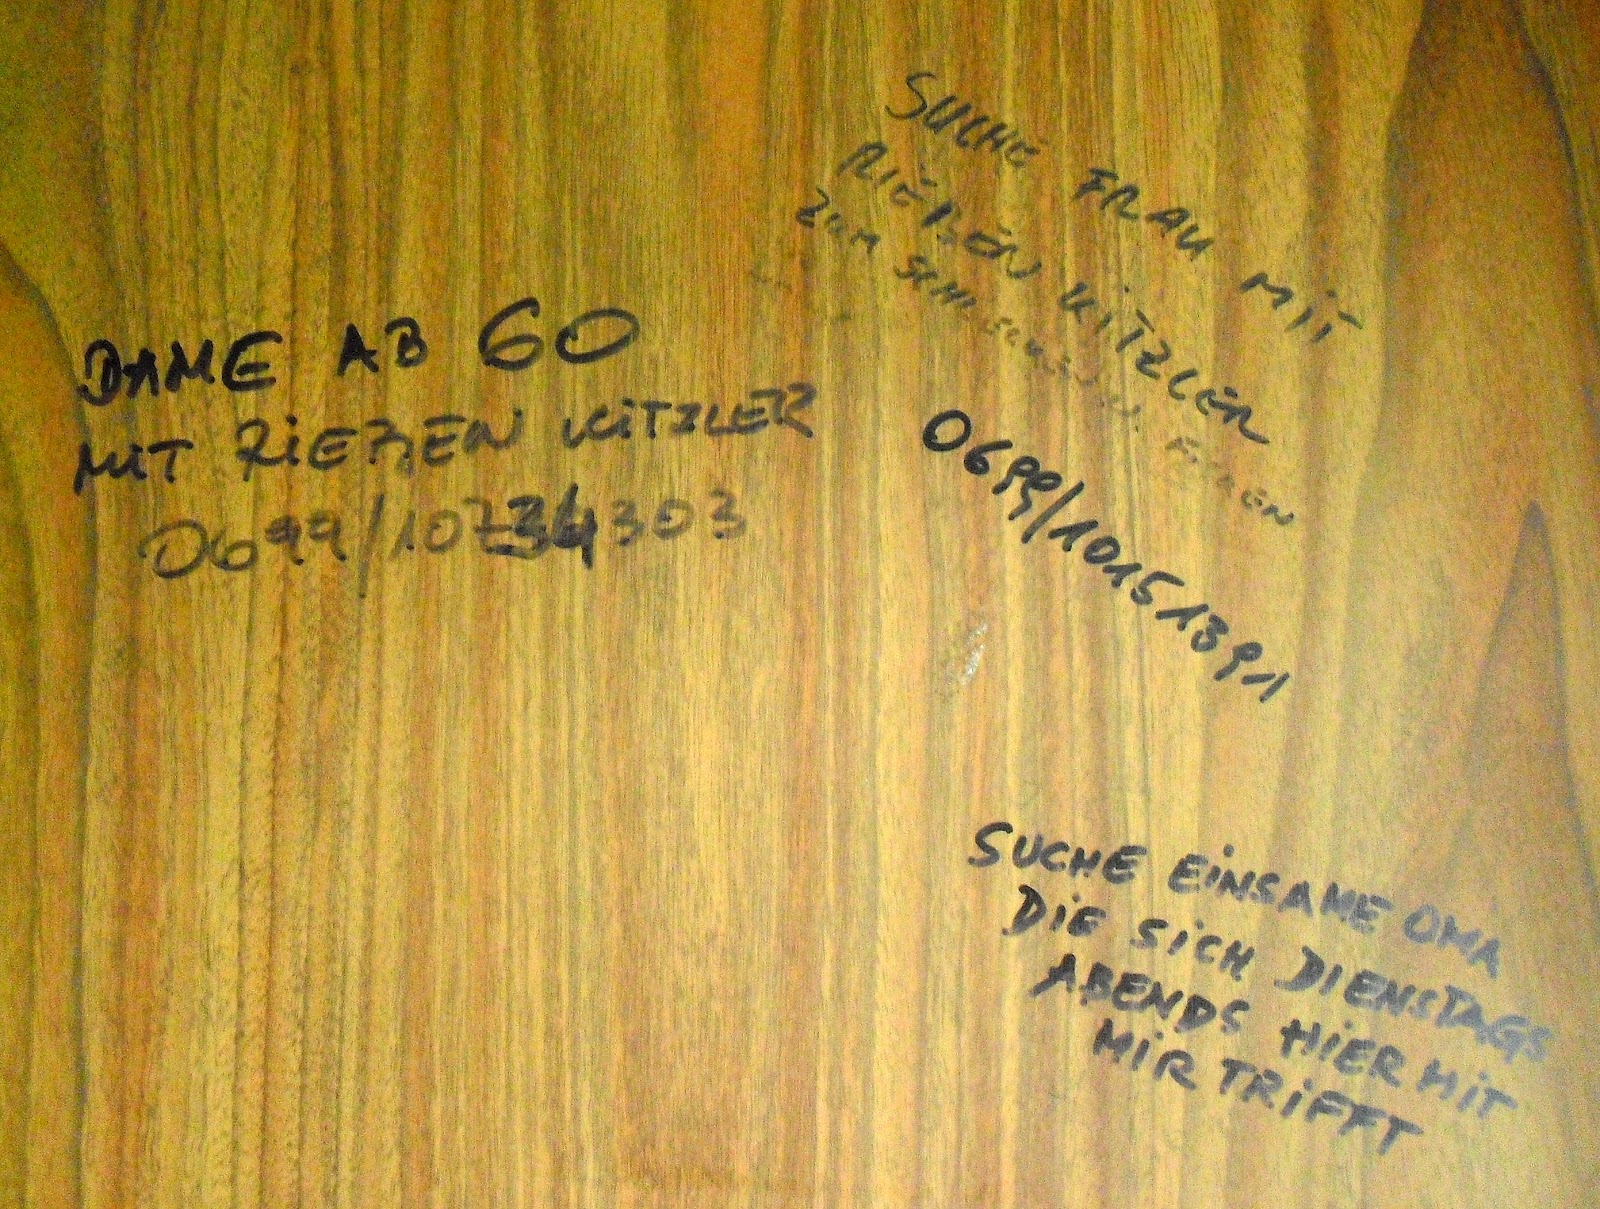 DAME AB 60
MIT RIEßEN KITZLER
0699/10734303
SUCHE FRAU MIT
RIEßEN KITZLER
ZUM
0699/10151391
SUCHE EINSAME OMA
DIE SICH DIENSTAGS
ABENDS HIER MIT
MIR TRIFFT